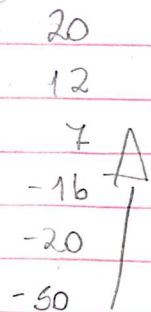 20
12
7
-16
-20
-50